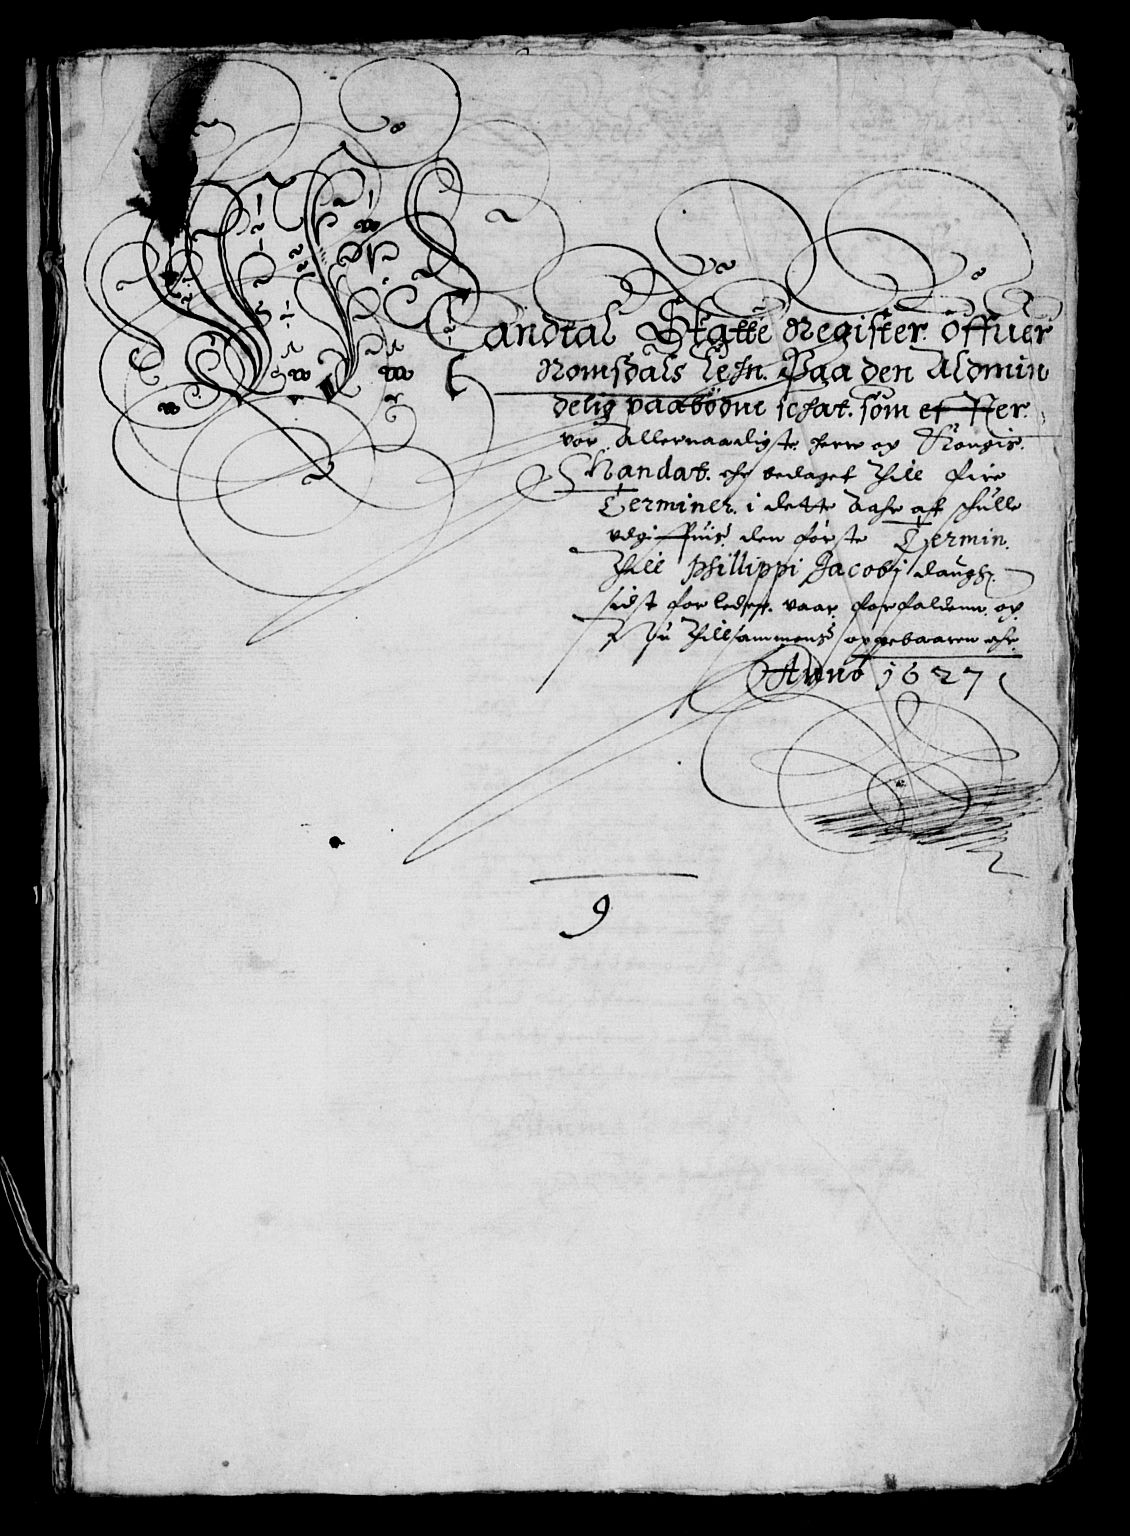 Mandtal Skatte Register. Offuer
Romsdals Lehn. Paa den Aldmin
delig paabödne schat. som efter
vor Allernaadigste herre og Kongis
Mandat. ehr bedaget Thill fire
Terminer. i dette Aahr att schulle
udgiffuis. den förste Termin.
Thill Phillippi Jacobj daugh.
sidst forleden. vaar forfalden. og
Nu Thillsammens opgebaaren ehr.
Anno 1627
9